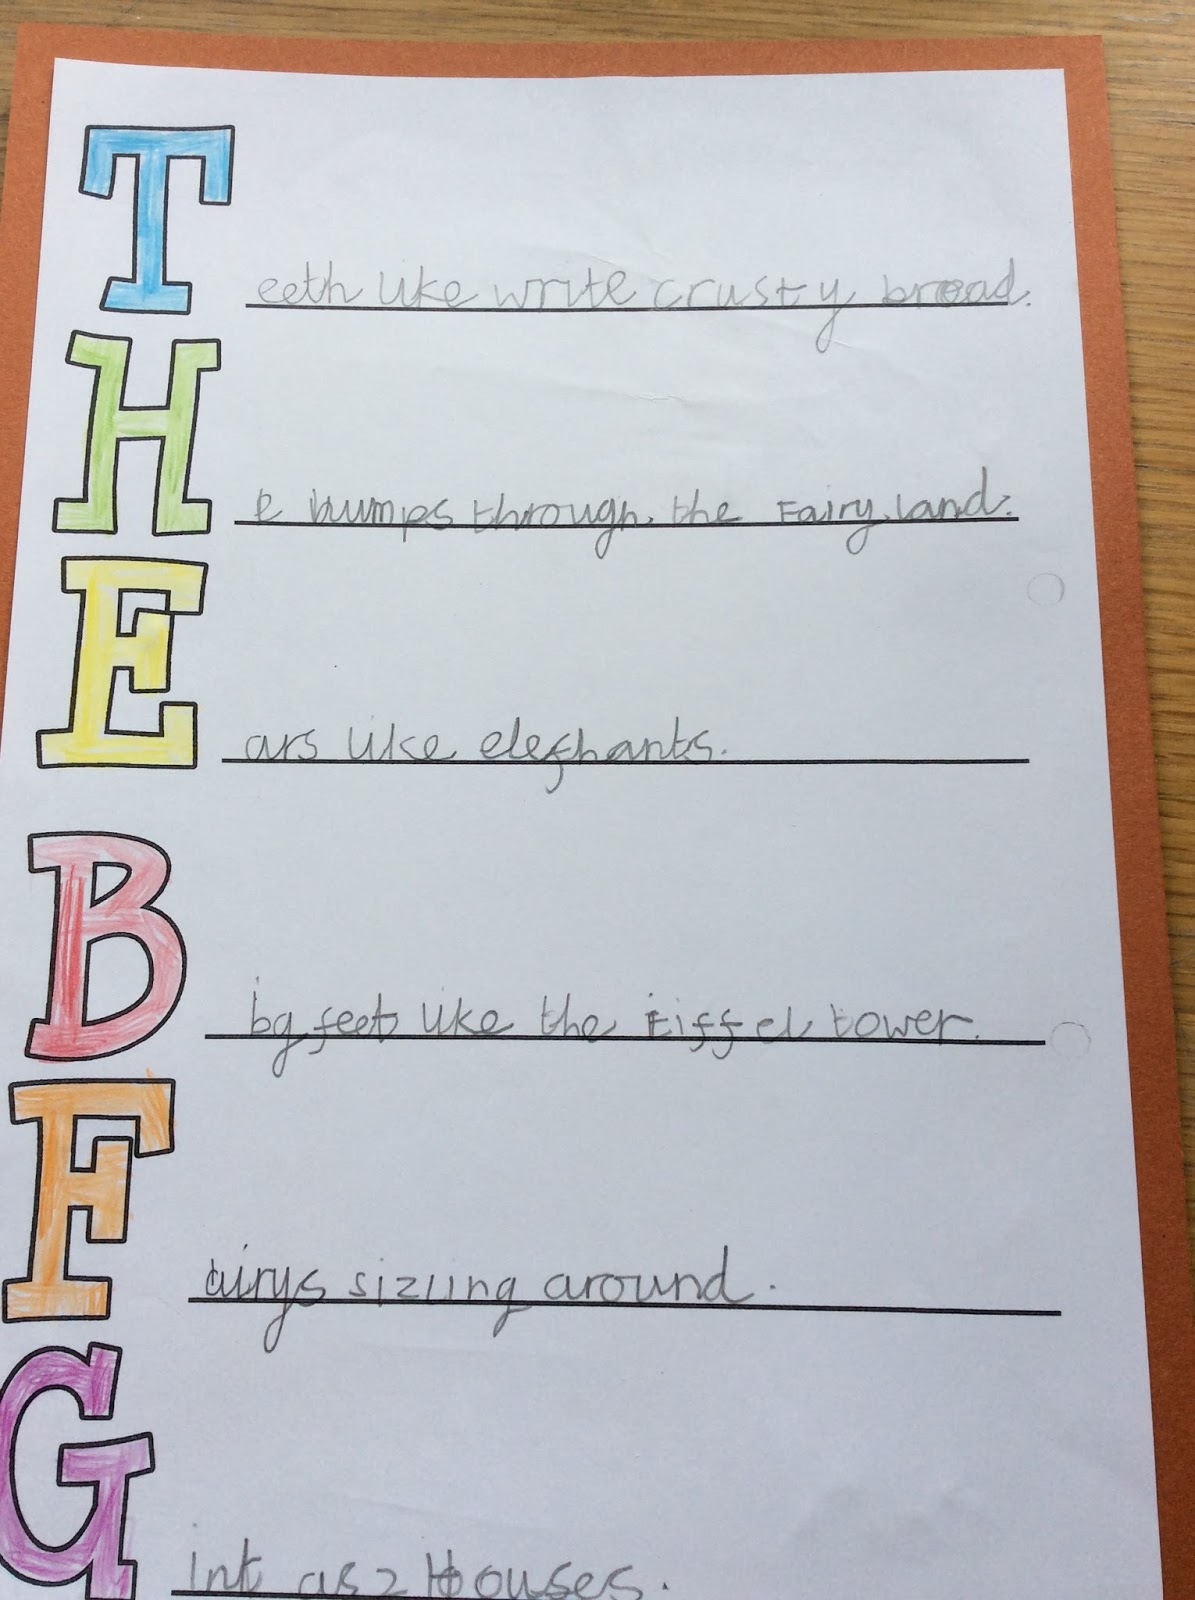 Teeth like write crusty bread.
He bumps through the Fairy land.
Ears like elephants.
B ig feet like the Eiffel tower.
Fairys sizling around.
Gint as 2 Houses.